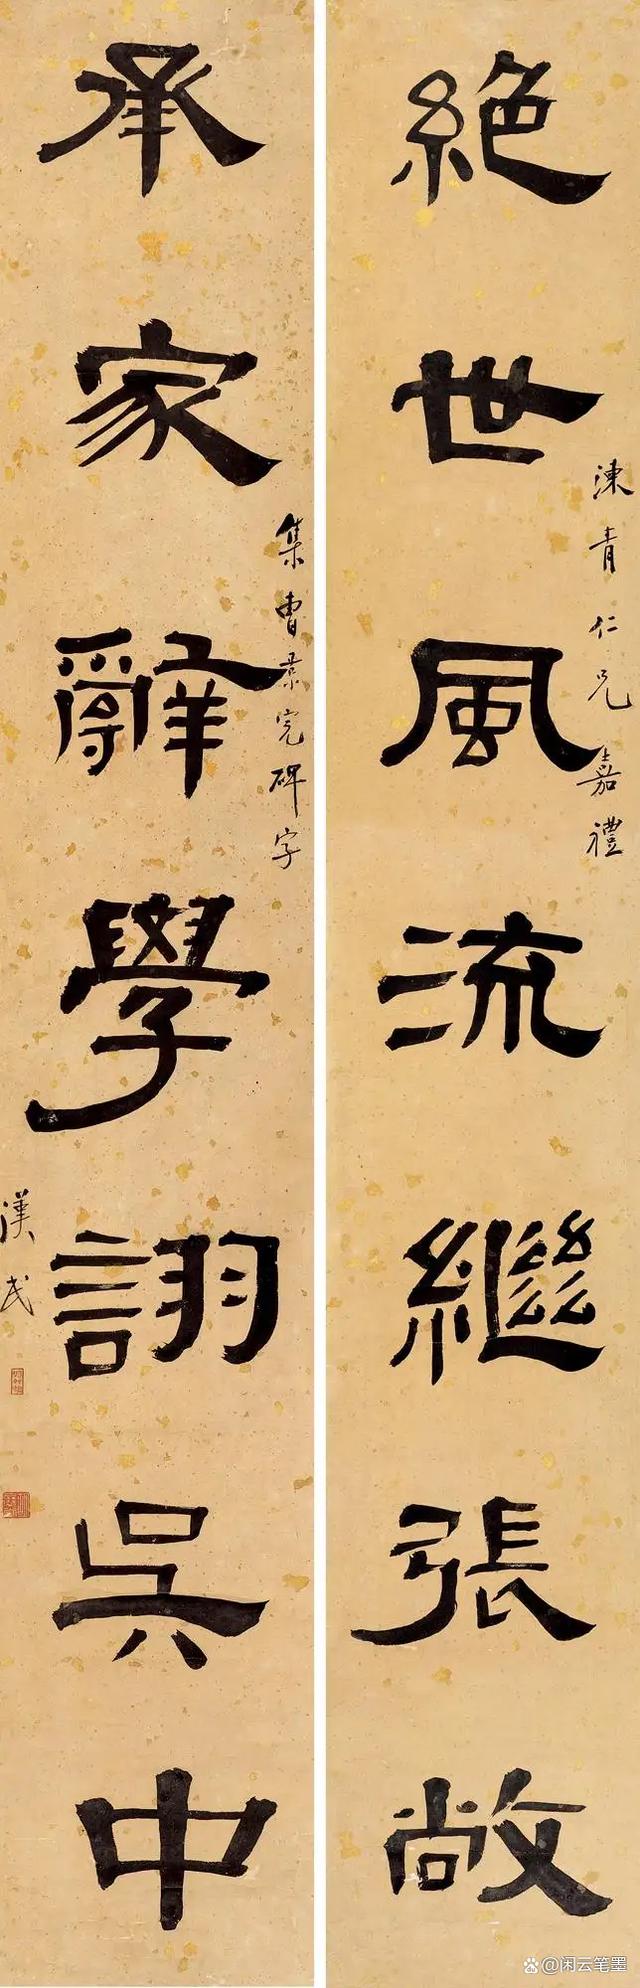 絕世風流繼張敞
涑青仁兄嘉禮
承家辭學詡吳中
集曹景完碑字
漢民
@闲云笔墨